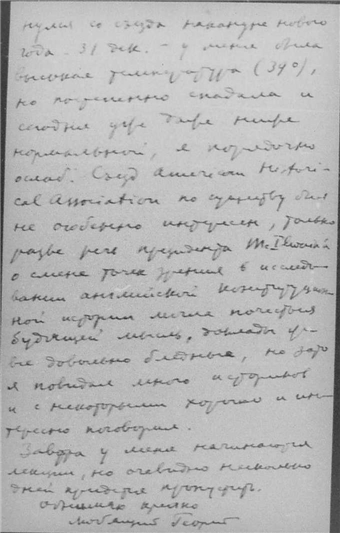 нулся со съезда накануне нового
года - 31 дек. - у меня была
высокая температура (39°),
но постепенно спадала и
сегодня уже даже ниже
нормальной, я порядочно
ослаб. Съезд American Histori-
cal Association по существу был
не особенно интересен, только
разве речь президента McIlwain'а
о смене точек зрения в исследо-
вании английской конституцион-
ной истории можно почесть
будящей мысль, доклады
довольно бледные, но зато
я повидал много историков
и с некоторыми хорошо и ин-
тересно поговорил.
Завтра у меня начинаются
лекции, но очевидно несколько
дней придется пропустить.
Обнимаю крепко
любящий Георгий